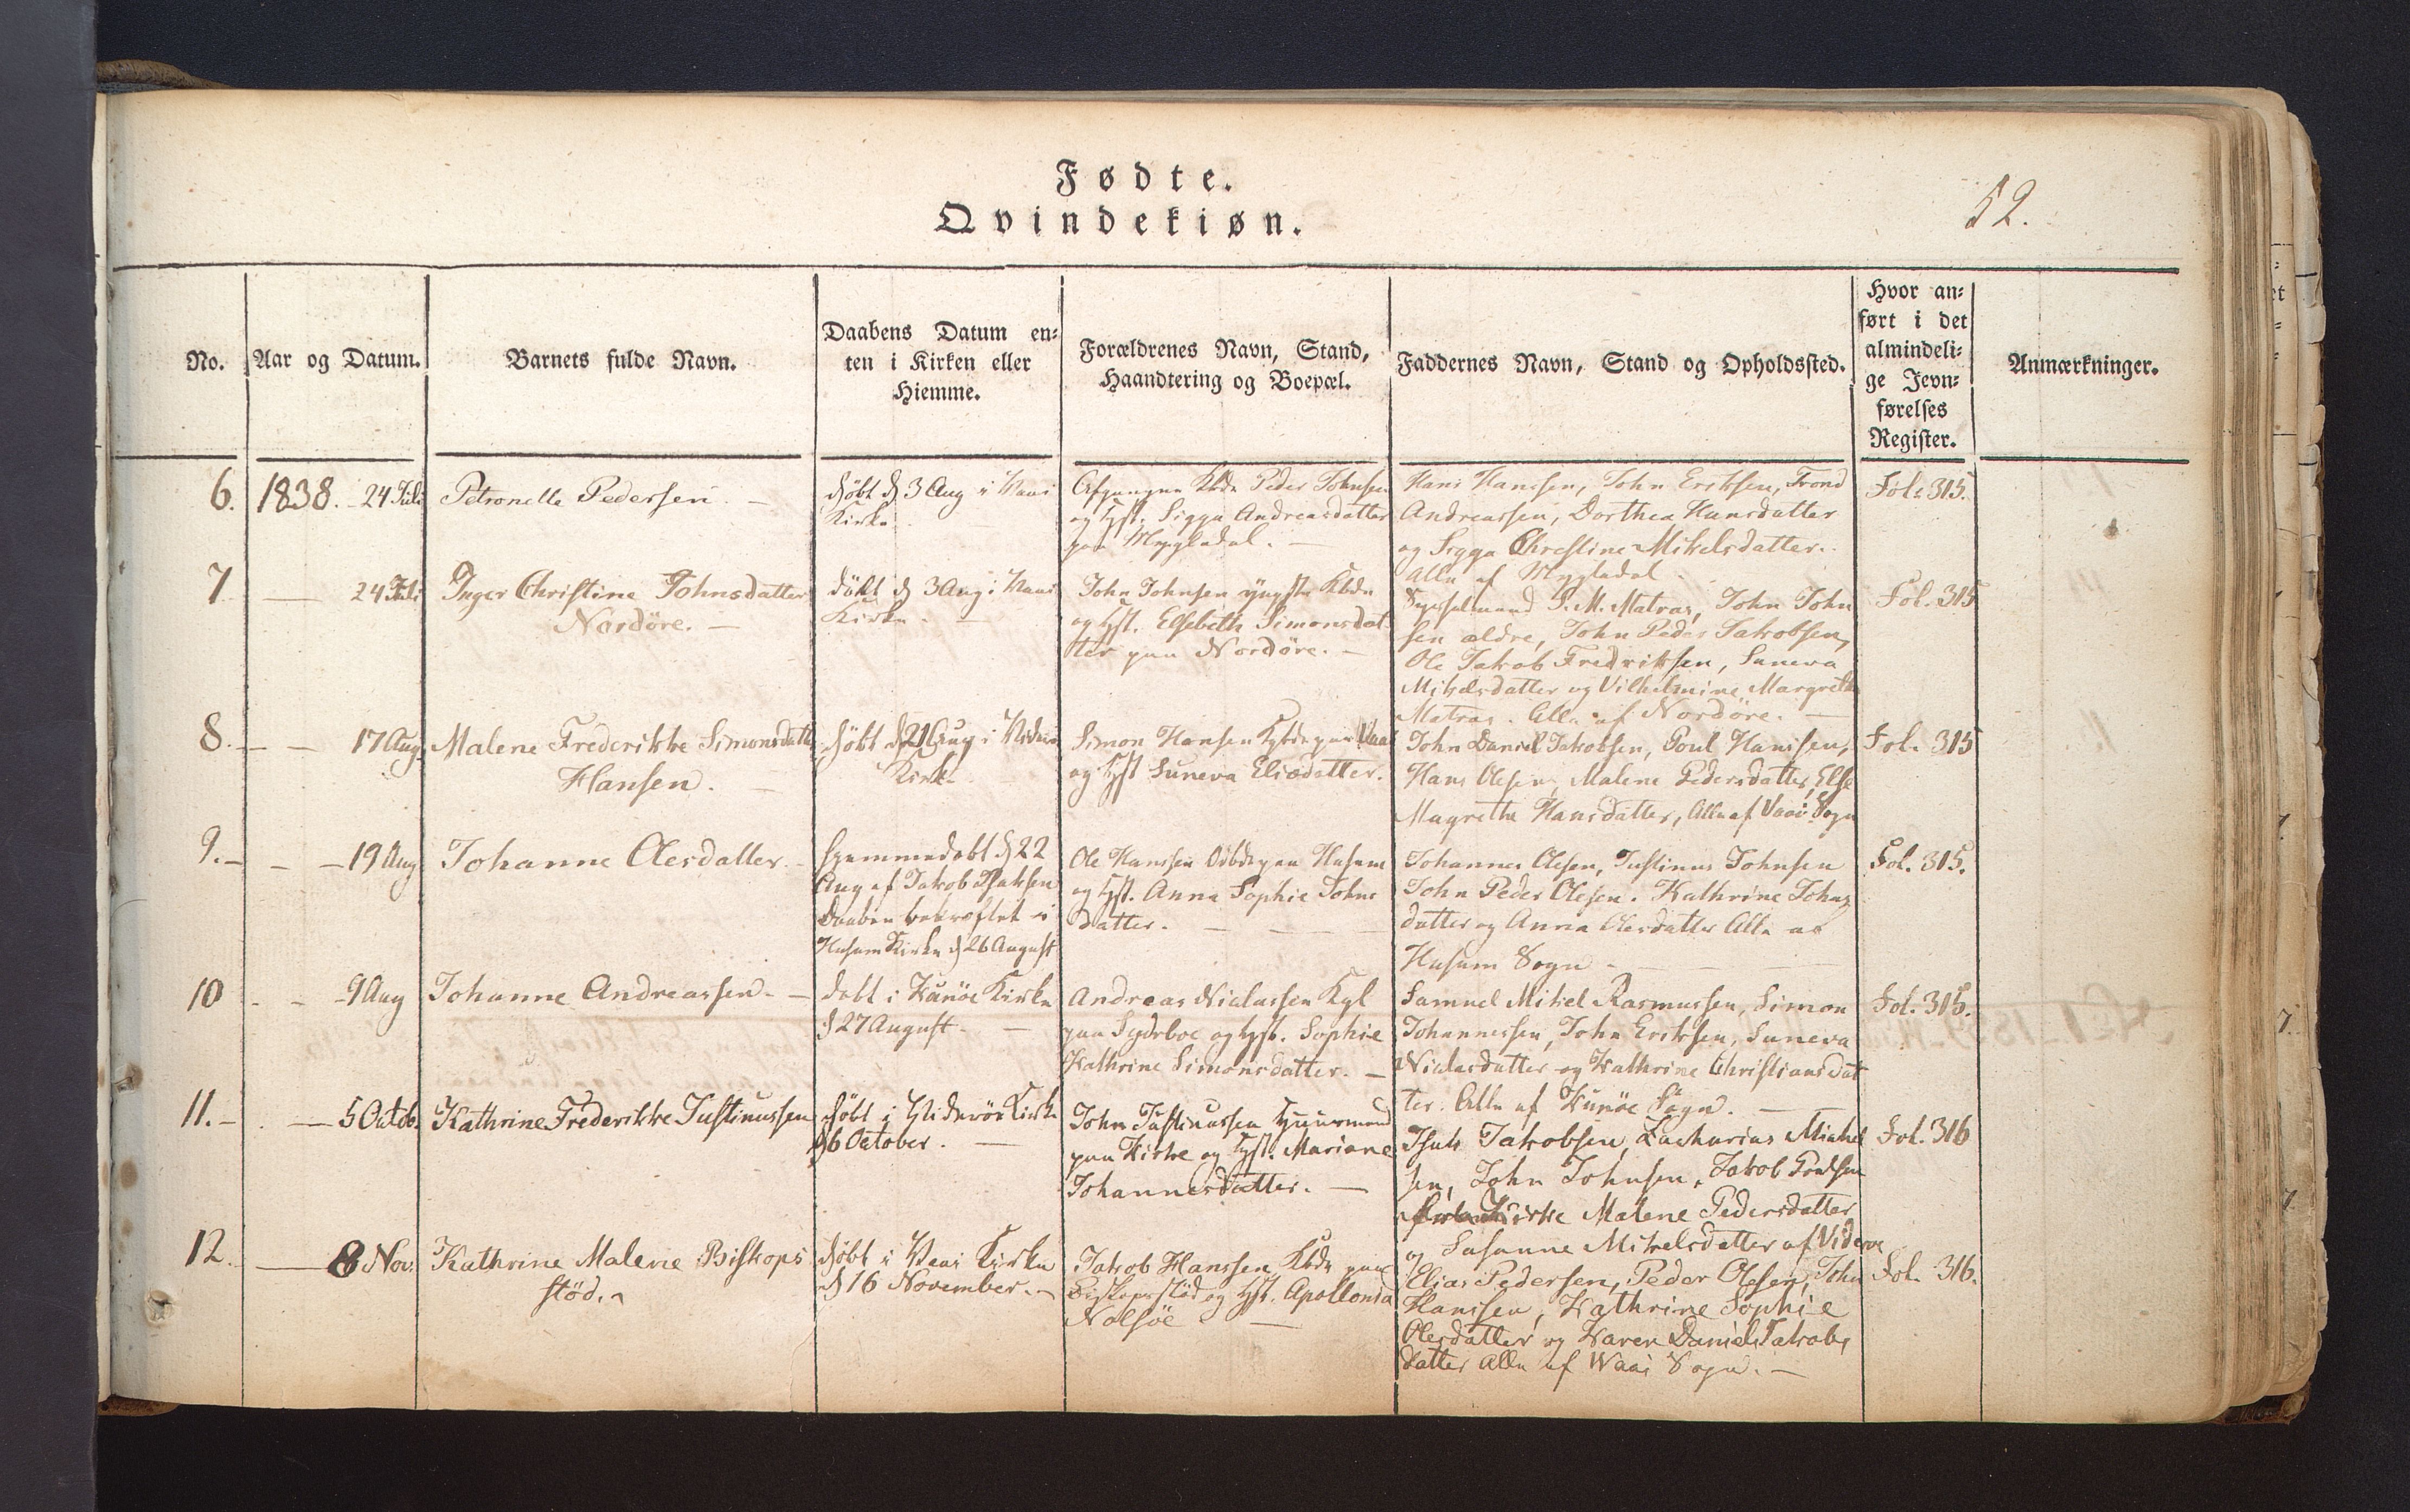 Fødte.
Qvindekiøn.
52.
No.
Aar og Datum.
Barnets fulde Navn.
Daabens Datum en-
ten i Kirken eller
Hiemme.
Forældrenes Navn, Stand,
Haandtering og Boepæl.
Faddernes Navn, Stand og Opholdssted.
Hvor an-
ført i det
almindeli-
ge Jevn-
førelses
Register.
Anmærkninger.
6.
1838. 24 Juli
Petronelle Pedersen. —
Døbt d 3 Aug i Waai
Kirke.
Kbdr Peder Johnsen
og Hst. Sigga Andreasdatter
paa Mygledal. —
Hans Hansen, John Eriksen, Trond
Andreassen, Dorthea Hansdatter
og Sigga Christine Mikelsdatter.
Alle af Mygledal.
Fol: 315.
7
— 24 Juli
Inger Christine Johnsdatter
Nordöre. —
Döbt d 3 Aug i Waai
Kirke. —
John Johnsen yngste Kbdr
og Hst. Elsebeth Simonsdat
ter paa Nordöre. —
Sysselmand P. M. Matras, John John
sen ældre, John Peder Jakobsen,
Ole Jakob Fredriksen, Suneva
Mikelsdatter og Vilhelmine Margrethe
Matras. Alle af Nordöre. —
Fol. 315
8. — —
17 Aug.
Malene Frederikke Simonsdatter
Hansen. —
Döbt d 21 Aug i
Kirke
Simon Hansen paa Vaai
og Hst Suneva Eliasdatter.
John Daniel Jakobsen, Poul Hansen,
Hans Olesen, Malene Pedersdatter, Else
Magrethe Hansdatter, Alle af Vaai Sogn
Fol. 315
9. —
— — 19 Aug
Johanne Olesdatter. —
Hjemmedøbt d 22
Aug af Jakob Isaksen
Daaben bekræftet i
Husum Kirke d 26 August
Ole Hansen Odbdr paa Husum
og Hst. Anna Sophie Johns
datter. — — —
Johannes Olesen, Justinus Johnsen
John Peder Olesen. Kathrine Johns
datter og Anna Olesdatter Alle af
Husum Sogn — — —
Fol. 315.
10
- - 9 Aug
Johanne Andreassen. —
Døbt i Kunøe Kirke
d 27 August. —
Andreas Niclassen
paa Syderboe og Hst. Sophie
Kathrine Simonsdatter. —
Samuel Mikel Rasmussen, Simon
Johannessen, John Eriksen, Suneva
Niclasdatter og Kathrine Christiansdat
ter. Alle af Kunøe Sogn. —
Fol. 315.
11. —
— 5 Octob.
Kathrine Frederikke Justinussen
Døbt i Kirke
d 6 October. —
John Justinussen Huusmand
paa Kirke og Hst. Mariane
Johannesdatter. —
Isak Jakobsen, Zacharias Mikel
sen, John Johnsen, Jakob Poulsen
Kirke Malene Pedersdatter
og Susanne Mikelsdatter af Videroe
Fol. 316
12.
— 8 Nov.
Kathrine Malene Biskops
stöd. ~
Døbt i Waai Kirke
d 16 November. ~
Jakob Hanssen Kbdr paa
Biskopsstöd og Hst. Apollonia
Nolsöe —
Elias Pedersen, Peder Olesen, John
Hanssen, Kathrine Sophie
Olesdatter og Karen Daniel Jakobs
datter Alle af Waai Sogn. —
Fol. 316.